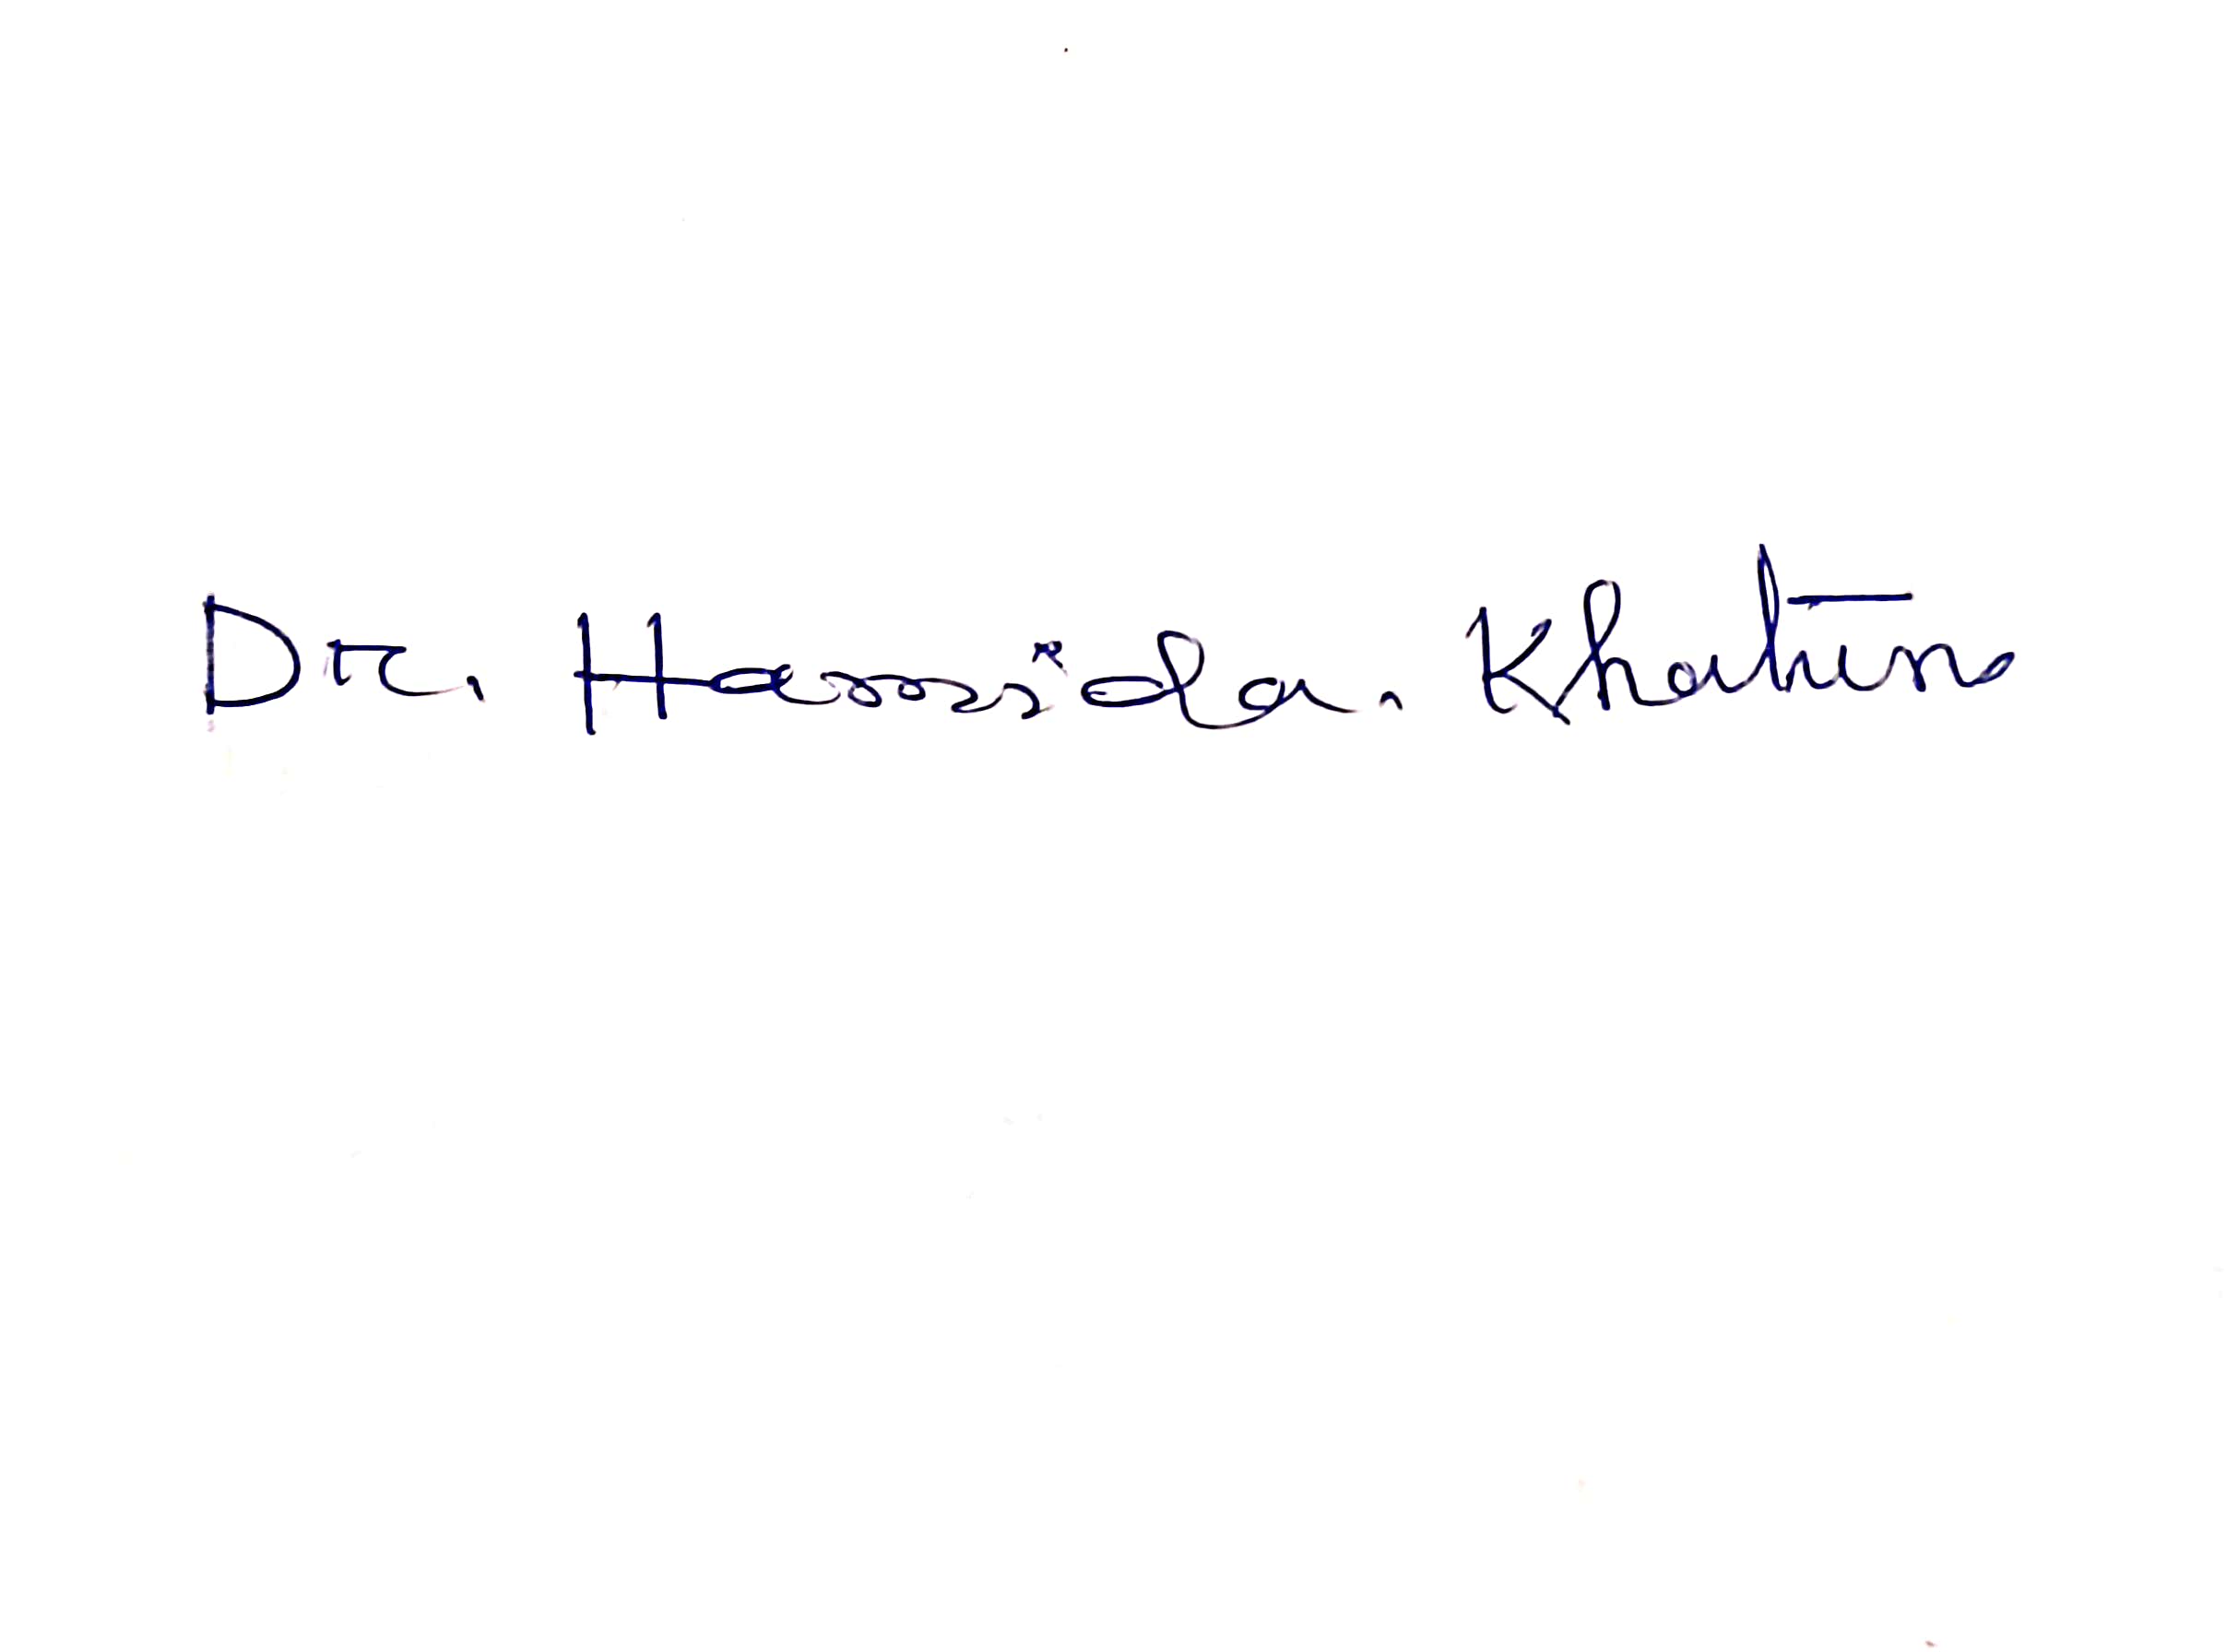 Dr. Hamida. Khatun